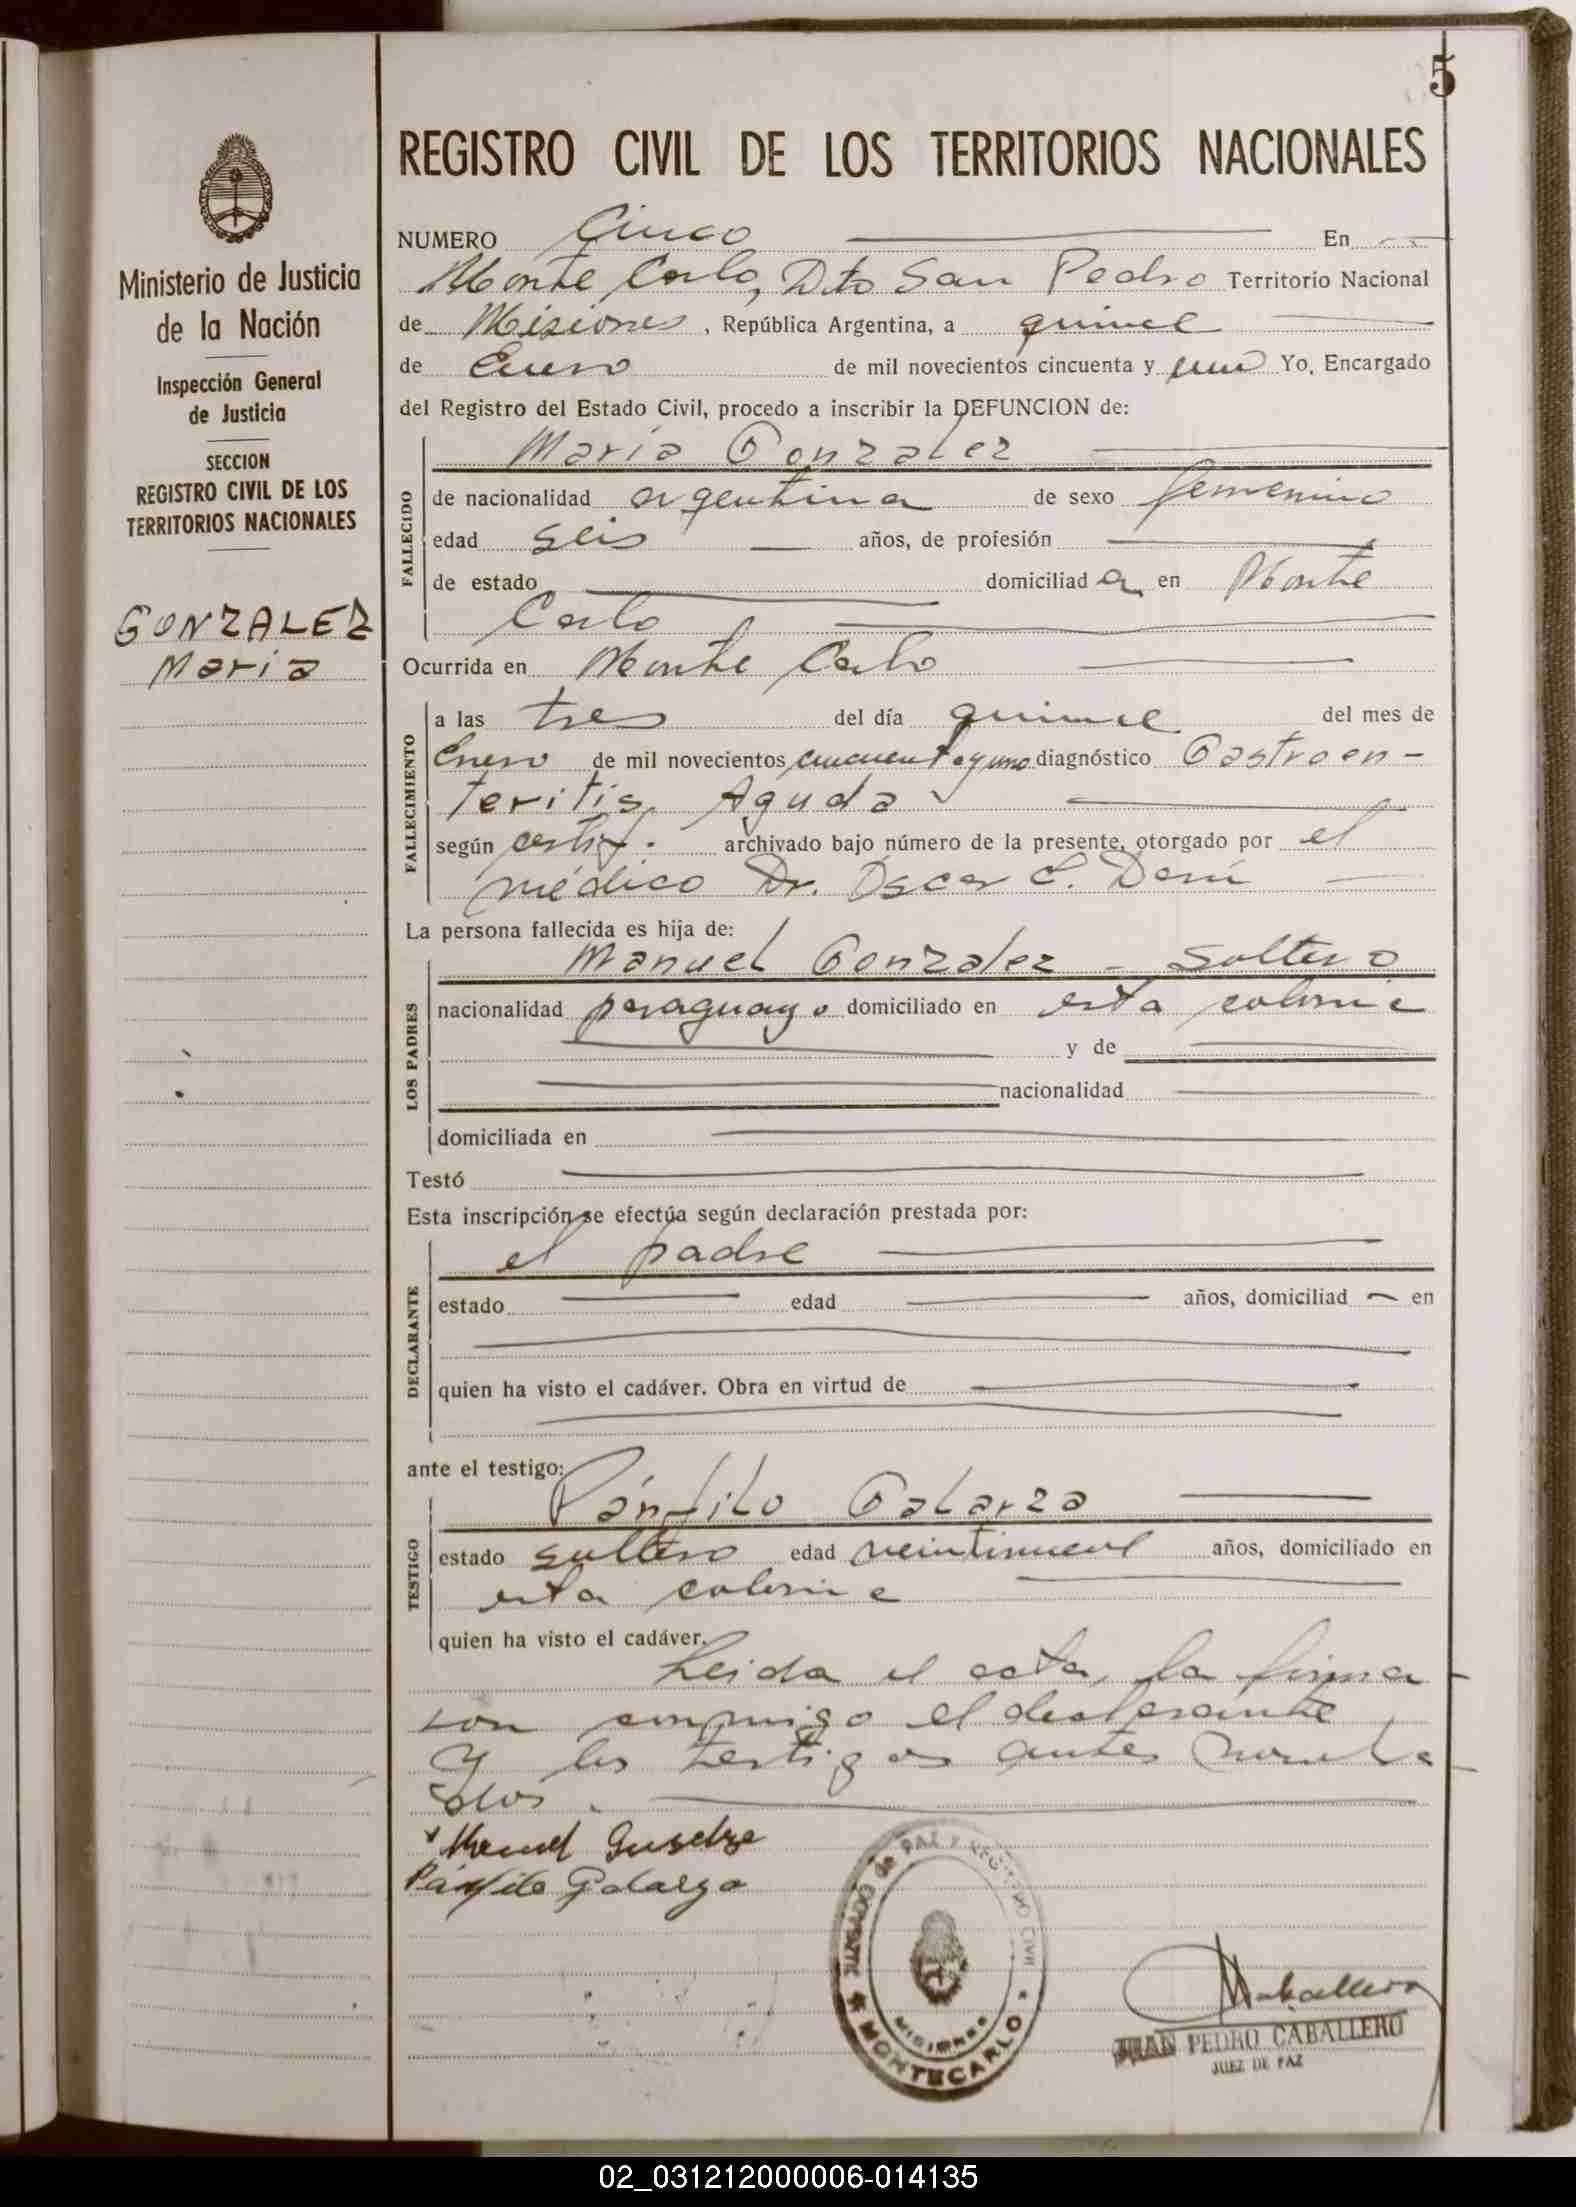 5
REGISTRO CIVIL DE LOS TERRITORIOS NACIONALES
Ministerio de Justicia
de la Nación
Inspección General
de Justicia
SECCION
REGISTRO CIVIL DE LOS
TERRITORIOS NACIONALES
GONZALEZ
Maria
NUMERO Cinco En
Monte Carlo, Dto San Pedro Territorio Nacional
de Misiones, República Argentina, a quince
de Enero de mil novecientos cincuenta y uno Yo, Encargado
del Registro del Estado Civil, procedo a inscribir la DEFUNCION de:
FALLECIDO
María Gonzalez
de nacionalidad argentina de sexo femenino
edad seis años, de profesión
de estado domiciliad a en Monte
Carlo
Ocurrida en Monte Carlo
FALLECIMIENTO
a las tres del día quince del mes de
Enero de mil novecientos cincuenta y uno diagnóstico Gastroen-
teritis Aguda
según certif. archivado bajo número de la presente, otorgado por el
médico Dr. Oscar C.
La persona fallecida es hija de:
LOS PADRES
Manuel Gonzalez - soltero
nacionalidad paraguayo domiciliado en esta colonia
y de
nacionalidad
domiciliada en
Testó
Esta inscripción se efectúa según declaración prestada por:
DECLARANTE
el padre
estado edad años, domiciliad en
quien ha visto el cadáver. Obra en virtud de
ante el testigo:
TESTIGO
Pánfilo Galarza
estado soltero edad veintinueve años, domiciliado en
esta colonia
quien ha visto el cadáver.
Leida el acta, la firma
ron conmigo el declarante
y los testigos antes nombra
dos.
Manuel
Pánfilo Galarza
JUZGADO de PAZ Y REGISTRO CIVIL
MISIONES
MONTECARLO
Caballero
JUAN PEDRO CABALLERO
JUEZ DE PAZ
02_031212000006-014135